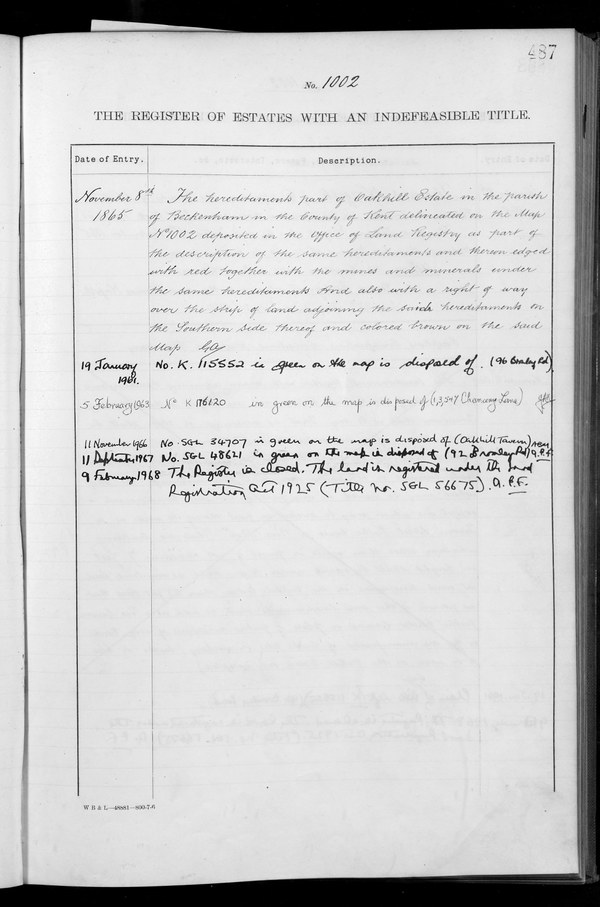 487
No. 1002
THE REGISTER OF ESTATES WITH AN INDEFEASIBLE TITLE.
Date of Entry. Description.
November 8th The hereditaments part of Oakhill Estate in the parish
1865 of Beckenham in the County of Kent delineated on the Map
No 1002 deposited in the Office of Land Registry as part of
the description of the same hereditaments and thereon edged
with red together with the mines and minerals under
the same hereditaments And also with a right of way
over the strip of land adjoining the said hereditaments on
the Southern side thereof and colored brown on the said
Map
19 January No. K. 115552 in green on the map is disposed of. (96 Bromley Rd)
1961.
5 February 1963 No K 176120 in green on the map is disposed of (1,3,5&7 Chancery Lane)
11 November 1966 No. SGL 34707 in green on the map is disposed of (Oakhill Tavern)
11 September 1967 No. SGL 48621 in green on the map is disposed of (92 Bromley Rd) A.P.F.
9 February 1968 The Register is closed. The land is registered under the Land
Registration Act 1925 (Title No. SGL 56675). A.P.F.
W B & L—48881—800-7-6